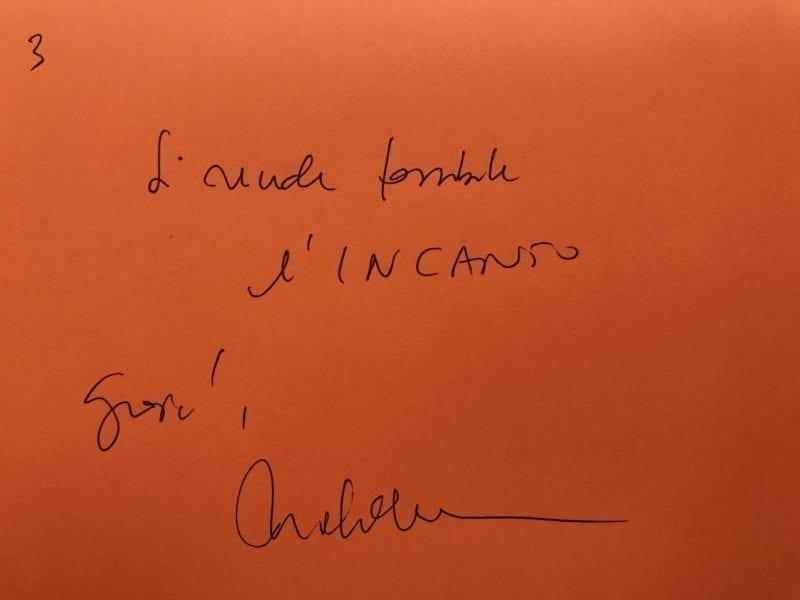 3
Si rende possibile
l'INCANTO
Grazie,